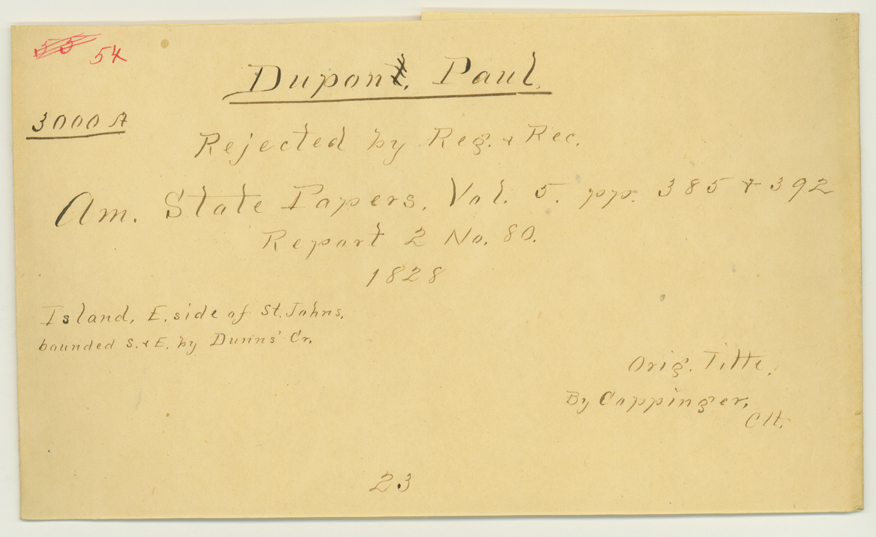 55 54
Dupont, Paul.
3000 A
Rejected by Reg. & Rec.
Am. State Papers, Vol. 5. pp. 385 & 392
Report 2 No. 80.
1828
Island, E. side of St. Johns,
bounded S. & E. by Dunns' Cr.
Orig. Title.
By Coppinger,
23